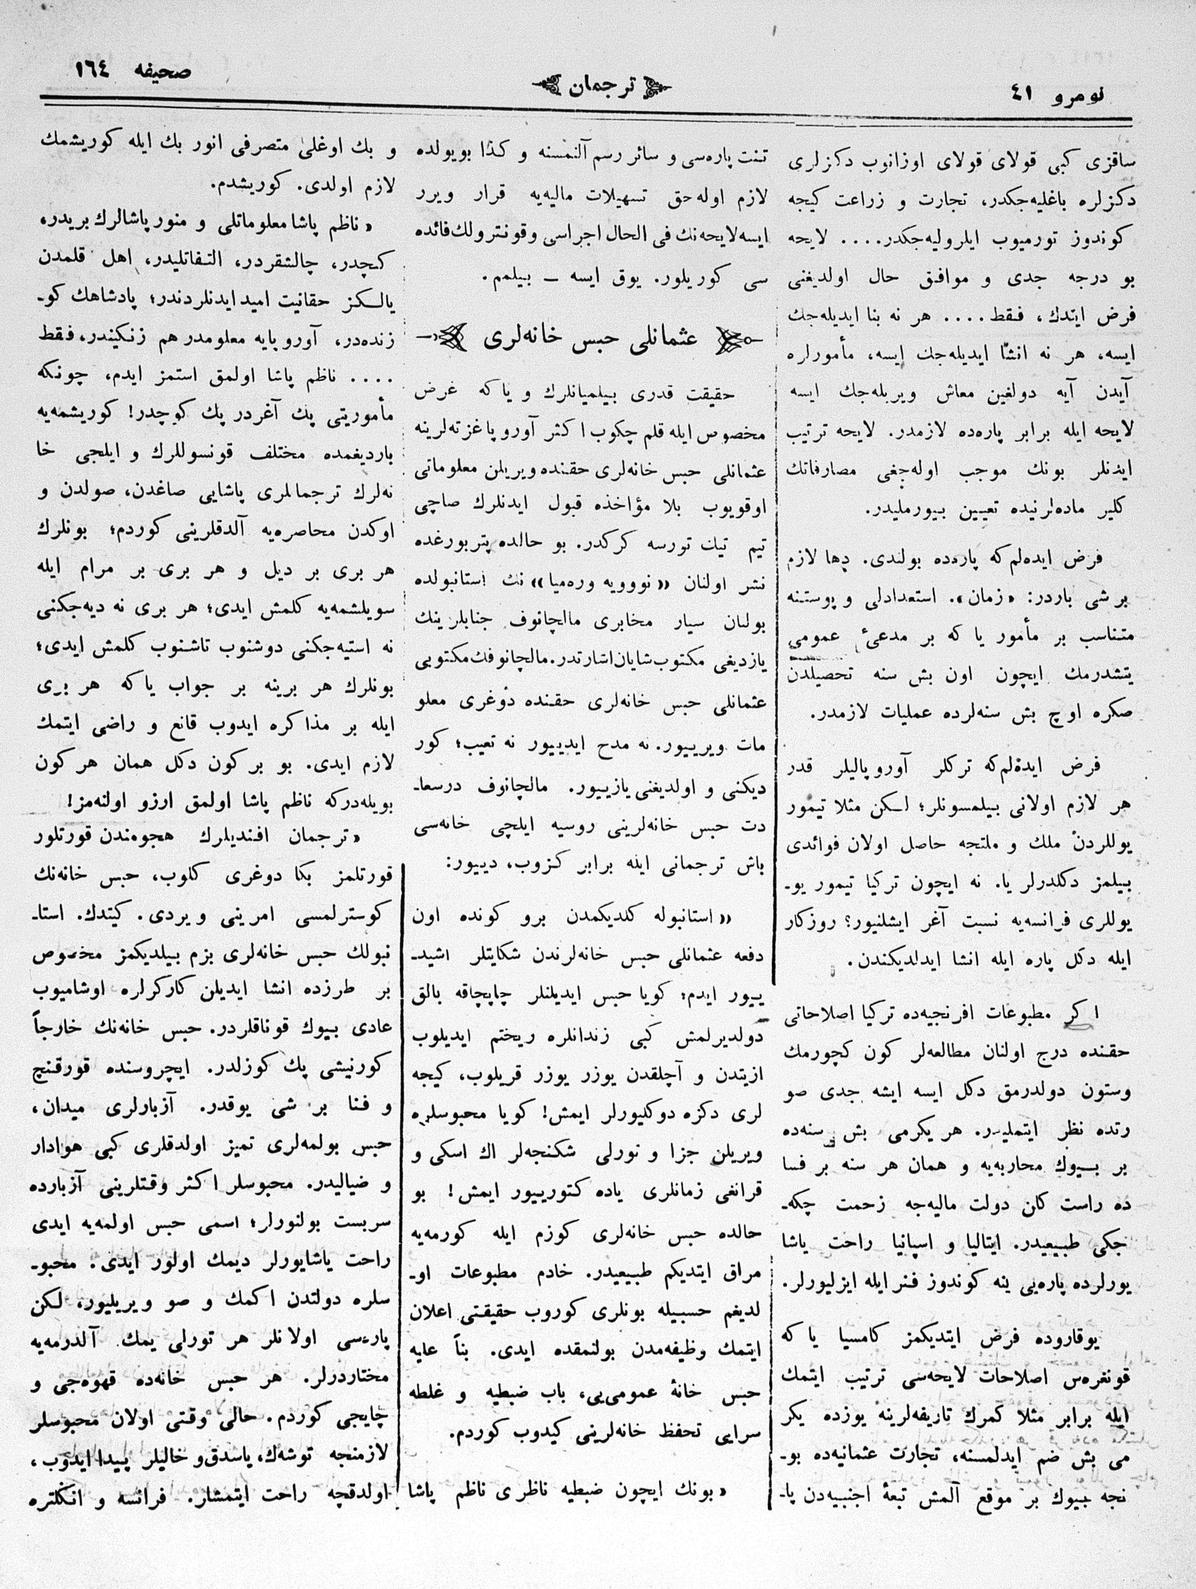 نومرو ٤١
ترجمان
صحيفه ١٦٤
ساقزى كبى قولاى قولاى اوزانوب دكزلرى
دكزلره باغليه‌جكدر، تجارت و زراعت كيجه
كوندوز تورميوب ايلروليه‌جكدر.... لايحه
بو درجه جدى و موافق حال اولديغنى
فرض ايتدك، فقط.... هر نه بنا ايديله‌جك
ايسه، هر نه انشا ايديله‌جك ايسه، مأمورلره
آيدن آيه دولغين معاش ويريله‌جك ايسه
لايحه ايله برابر پاره‌ده لازمدر. لايحه ترتيب
ايدنلر بونك موجب اوله‌جغى مصارفاتك
كلير ماده‌لرنيده تعيين بيورمليدر.
فرض ايده‌لم‌كه پاره‌ده بولندى. دها لازم
بر شى باردر: «زمان». استعدادلى و پوستنه
متناسب بر مأمور يا كه بر مدعئ عمومى
يتشدرمك ايچون اون بش سنه تحصيلدن
صكره اوچ بش سنه‌لرده عمليات لازمدر.
فرض ايده‌لم‌كه تركلر آوروپاليلر قدر
هر لازم اولانى بيلمسونلر؛ لكن مثلا تيمور
يوللردن ملك و ملتجه حاصل اولان فوائدى
بيلمز دكلدرلر يا. نه ايچون تركيا تيمور يو-
يوللرى فرانسه‌يه نسبت آغر ايشلنيور؟ روزكار
ايله دكل پاره ايله انشا ايدلديكندن.
اكر مطبوعات افرنجيه‌ده تركيا اصلاحاتى
حقنده درج اولنان مطالعه‌لر كون كچورمك
وستون دولدرمق دكل ايسه ايشه جدى صو
رتده نظر ايتمليدر. هر يكرمى بش سنه‌ده
بر بيوك محاربه‌يه و همان هر سنه بر فسا
ده راست كان دولت ماليه‌جه زحمت چكه-
جكى طبيعيدر. ايتاليا و اسپانيا راحت ياشا
يورلرده پاره‌يى ينه كوندوز فنر ايله ايزليورلر.
يوقاروده فرض ايتديكمز كامسيا يا كه
قونغره‌س اصلاحات لايحه‌سى ترتيب ايتمك
ايله برابر مثلا كمرك تاريفه‌لرينه يوزده يكر
مى بش ضم ايدلمسنه، تجارت عثمانيه‌ده بو-
نجه بيوك بر موقع آلمش تبعۀ اجنبيه‌دن پا-
تنت پاره‌سى و سائر رسم آلنمسنه و كذا بويولده
لازم اوله‌جق تسهيلات ماليه‌يه قرار ويرر
ايسه لايحه‌نك فى الحال اجراسى وقونترولك فائده
سى كوريلور. يوق ايسه — بيلمم.
عثمانلى حبس خانه‌لرى
حقيقت قدرى بيلميانلرك و ياكه غرض
مخصوص ايله قلم چكوب اكثر آوروپا غزته‌لرينه
عثمانلى حبس خانه‌لرى حقنده ويريلن معلوماتى
اوقويوب بلا مؤاخذه قبول ايدنلرك صاچى
تيم تيك تورسه كركدر. بو حالده پتربورغده
نشر اولنان «نوويه وره‌ميا» نك استانبولده
بولنان سيار مخابرى مالچانوف جنابلرينك
يازديغى مكتوب شايان اشارتدر. مالچانوفك مكتوبى
عثمانلى حبس خانه‌لرى حقنده دوغرى معلو
مات ويرييور. نه مدح ايدييور نه تعيب؛ كور
ديكنى و اولديغنى يازييور. مالچانوف درسعا-
دت حبس خانه‌لرينى روسيه ايلچى خانه‌سى
باش ترجمانى ايله برابر كزوب، دييور:
«استانبوله كلديكمدن برو كونده اون
دفعه عثمانلى حبس خانه‌لرندن شكايتلر اشيد-
ييور ايدم؛ كويا حبس ايديلنلر چاپچاقه بالق
دولديرلمش كبى زندانلره ريختم ايديلوب
ازيتدن و آچلقدن يوزر يوزر قريلوب، كيجه
لرى دكزه دوكليورلر ايمش! كويا محبوسلره
ويريلن جزا و تورلى شكنجه‌لر اك اسكى و
قرانغى زمانلرى ياده كتورييور ايمش! بو
حالده حبس خانه‌لرى كوزم ايله كورمه‌يه
مراق ايتديكم طبيعيدر. خادم مطبوعات او-
لديغم حسبيله بونلرى كوروب حقيقتى اعلان
ايتمك وظيفه‌مدن بولنمقده ايدى. بناً عليه
حبس خانۀ عمومى‌يى، باب ضبطيه و غلطه
سرايى تحفظ خانه‌لرينى كيدوب كوردم.
«بونك ايچون ضبطيه ناظرى ناظم پاشا
و بك اوغلى متصرفى انور بك ايله كوريشمك
لازم اولدى. كوريشدم.
«ناظم پاشا معلوماتلى و منور پاشالرك بريدر،
كنجدر، چالشقردر، التفاتليدر، اهل قلمدن
يالكز حقانيت اميد ايدنلردندر؛ پادشاهك كو-
زنده‌در، آوروپايه معلومدر هم زنكيندر، فقط
.... ناظم پاشا اولمق استمز ايدم، چونكه
مأموريتى پك آغردر پك كوچدر! كوريشمه‌يه
بارديغمده مختلف قونسوللرك و ايلچى خا
نه‌لرك ترجمالمرى پاشايى صاغدن، صولدن و
اوكدن محاصره‌يه آلدقلرينى كوردم؛ بونلرك
هر برى بر ديل و هر برى بر مرام ايله
سويلشمه‌يه كلمش ايدى؛ هر برى نه ديه‌جكنى
نه استيه‌جكنى دوشنوب تاشنوب كلمش ايدى؛
بونلرك هر برينه بر جواب ياكه هر برى
ايله بر مذاكره ايدوب قانع و راضى ايتمك
لازم ايدى. بو بر كون دكل همان هر كون
بويله‌در‌كه ناظم پاشا اولمق ارزو اولنه‌مز!
«ترجمان افنديلرك هجومندن قورتلور
قورتلمز بكا دوغرى كلوب، حبس خانه‌نك
كوسترلمسى امرينى ويردى. كيتدك. استا-
نبولك حبس خانه‌لرى بزم بيلديكمز مخصوص
بر طرزده انشا ايديلن كاركرلره اوشاميوب
عادى بيوك قوناقلردر. حبس خانه‌نك خارجاً
كورنيشى پك كوزلدر. ايچروسنده قورقنچ
و فنا بر شى يوقدر. آزبارلرى ميدان،
حبس بولمه‌لرى تميز اولدقلرى كبى هوادار
و ضياليدر. محبوسلر اكثر وقتلرينى آزبارده
سربست بولنورلر؛ اسمى حبس اولمه‌يه ايدى
راحت ياشايورلر ديمك اولور ايدى: محبو-
سلره دولتدن اكمك و صو ويريليور، لكن
پاره‌سى اولانلر هر تورلى يمك آلدرمه‌يه
مختاردرلر. هر حبس خانه‌ده قهوه‌جى و
چايجى كوردم. حالى وقتى اولان محبوسلر
لازمنجه توشه‌ك، ياسدق و خاليلر پيدا ايدوب،
اولدقچه راحت ايتمشلر. فرانسه و انكلتره